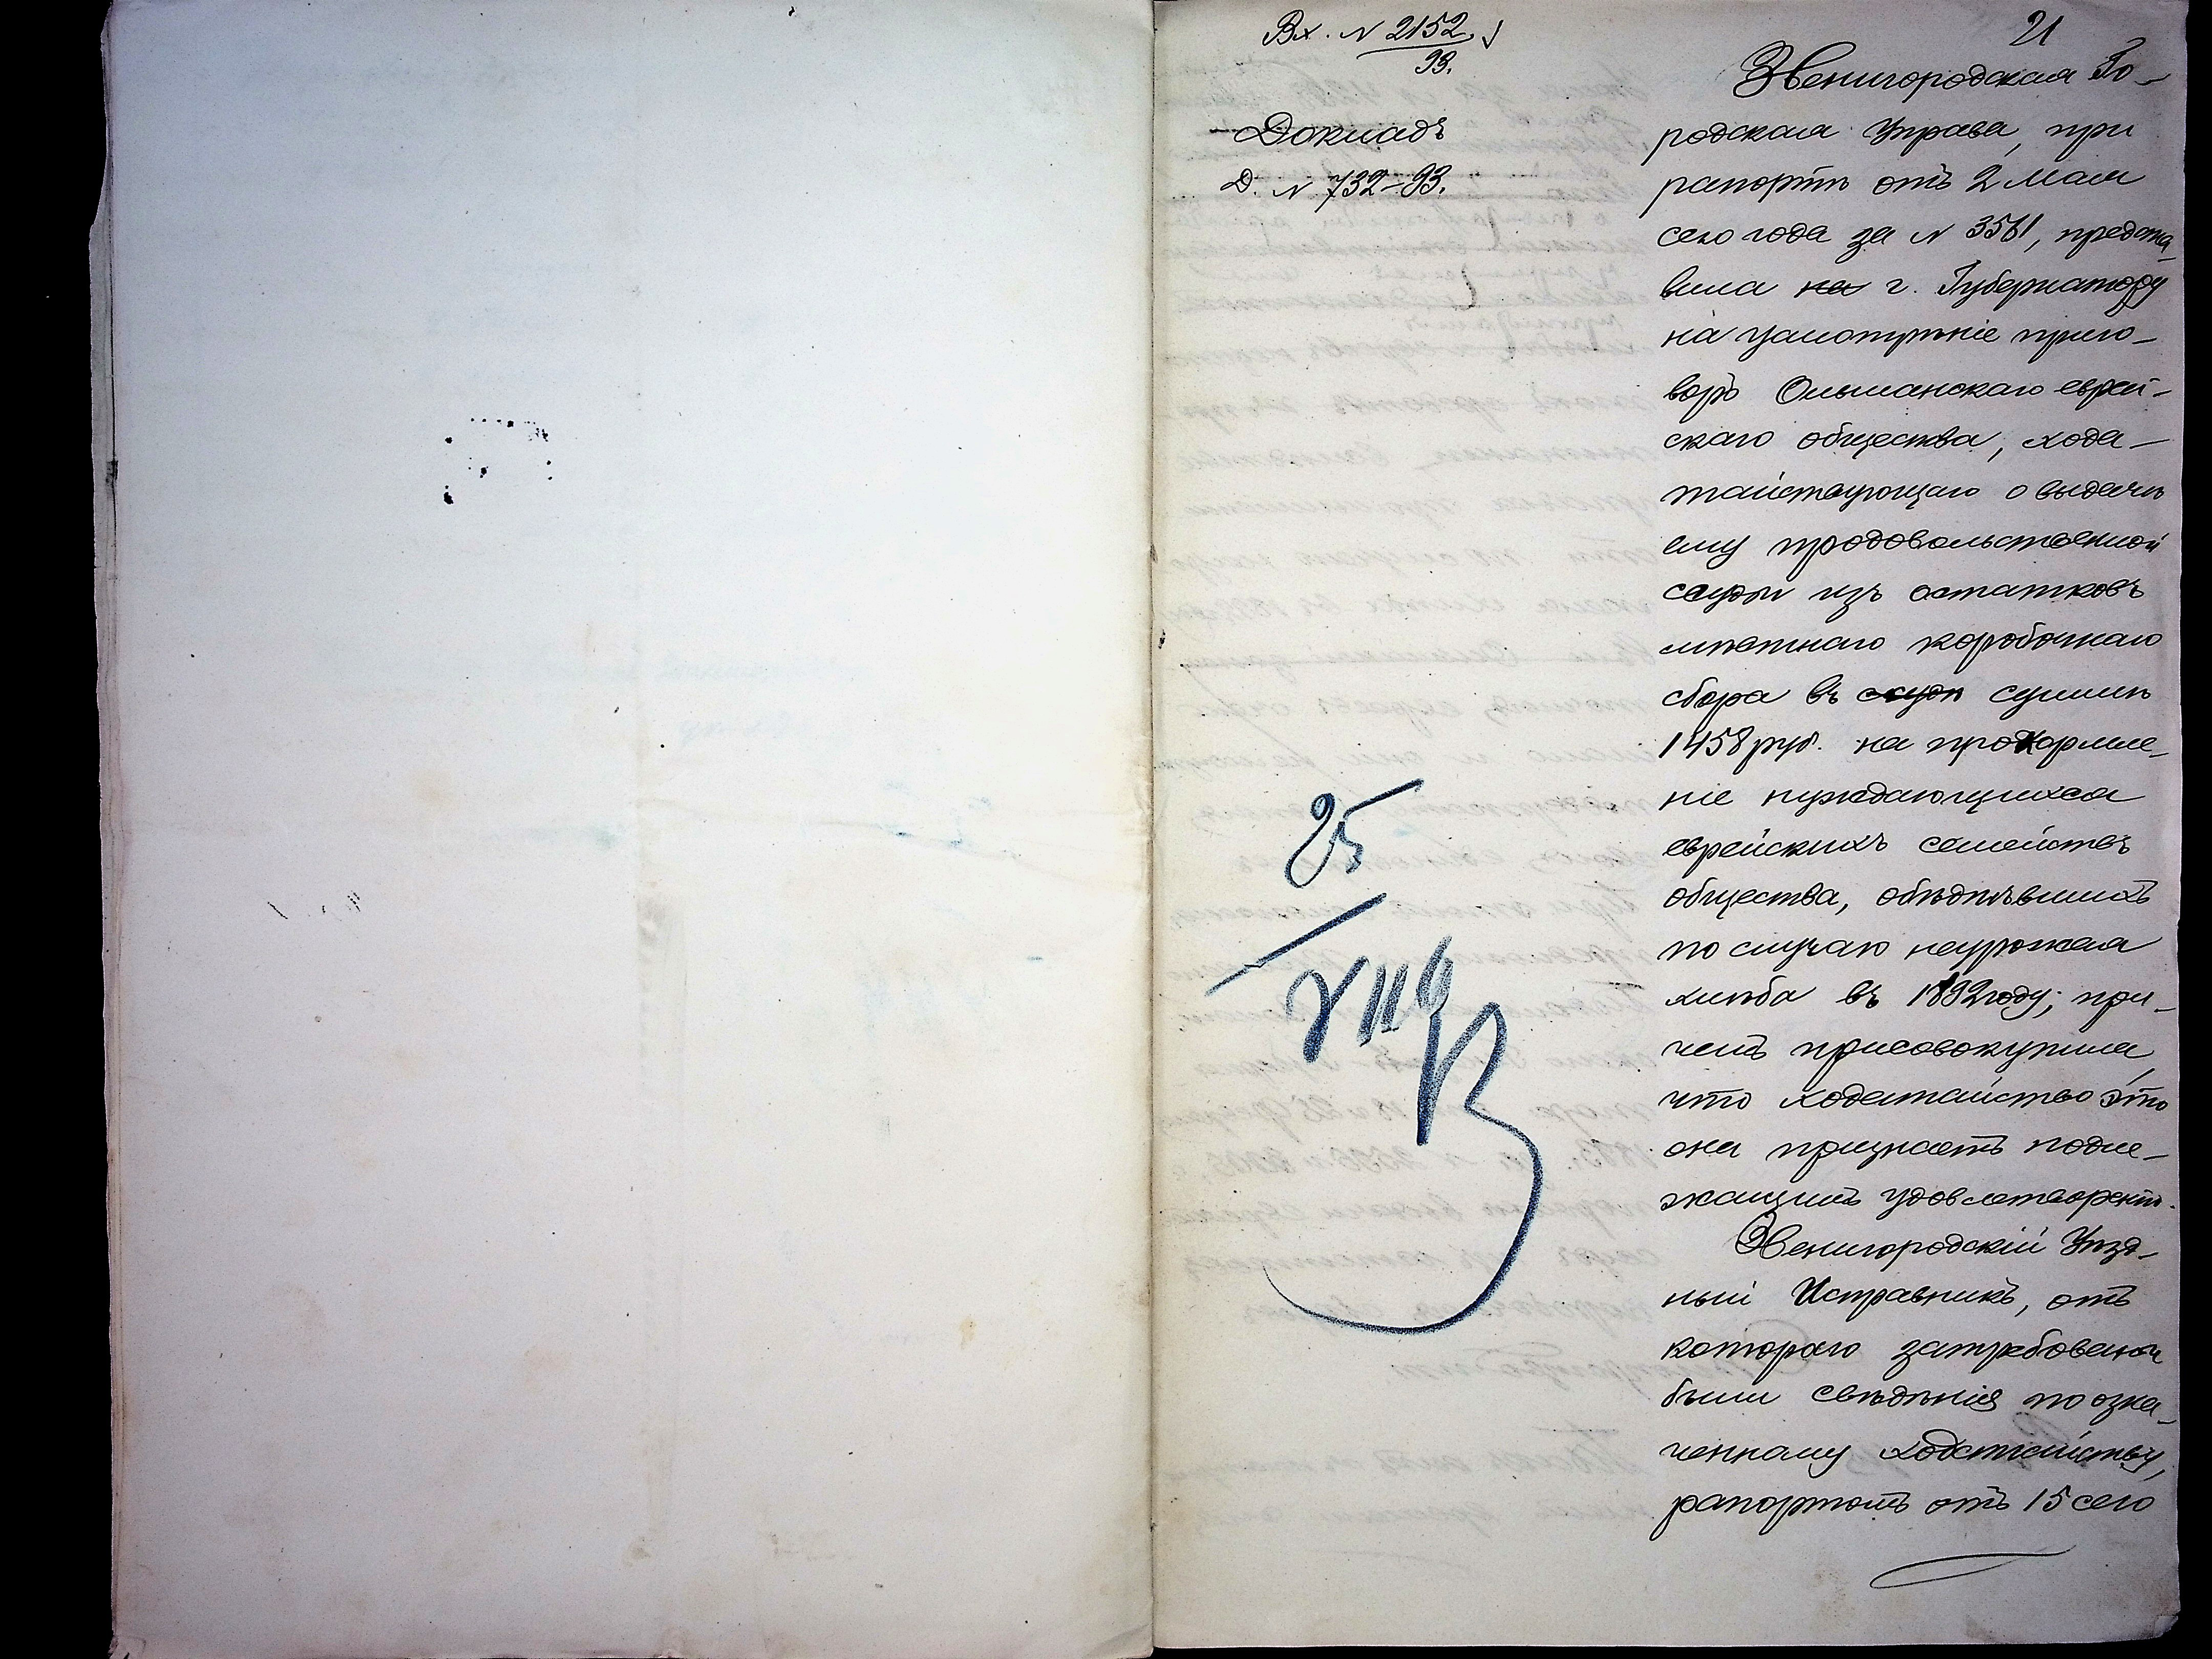 Вх. № 2152
93.
21
Докладъ
Д. № 732-93.
Звенигородская Го-
родская Управа, при
рапортѣ отъ 2 Мая
сего года за № 3561, предста-
вила на г. Губернатору
на усмотрѣніе приго-
воръ Ольшанскаго еврей-
скаго общества, хода-
тайствующаго о выдачѣ
ему продовольственной
ссуды изъ остатковъ
мѣстнаго коробочнаго
сбора въ ссуди суммѣ
1458 руб. на прокормле-
ніе нуждающихся
еврейскихъ семействъ
общества, обѣднѣвшихъ
по случаю неурожая
хлѣба въ 1892 году; при-
чемъ присовокупила,
что ходатайство это
она признаетъ подле-
жащимъ удовлетворенію.
Звенигородскій Уѣзд-
ный Исправникъ, отъ
котораго затребованы
были свѣдѣнія по озна-
ченному ходатайству,
рапортомъ отъ 15 сего
25
VIII